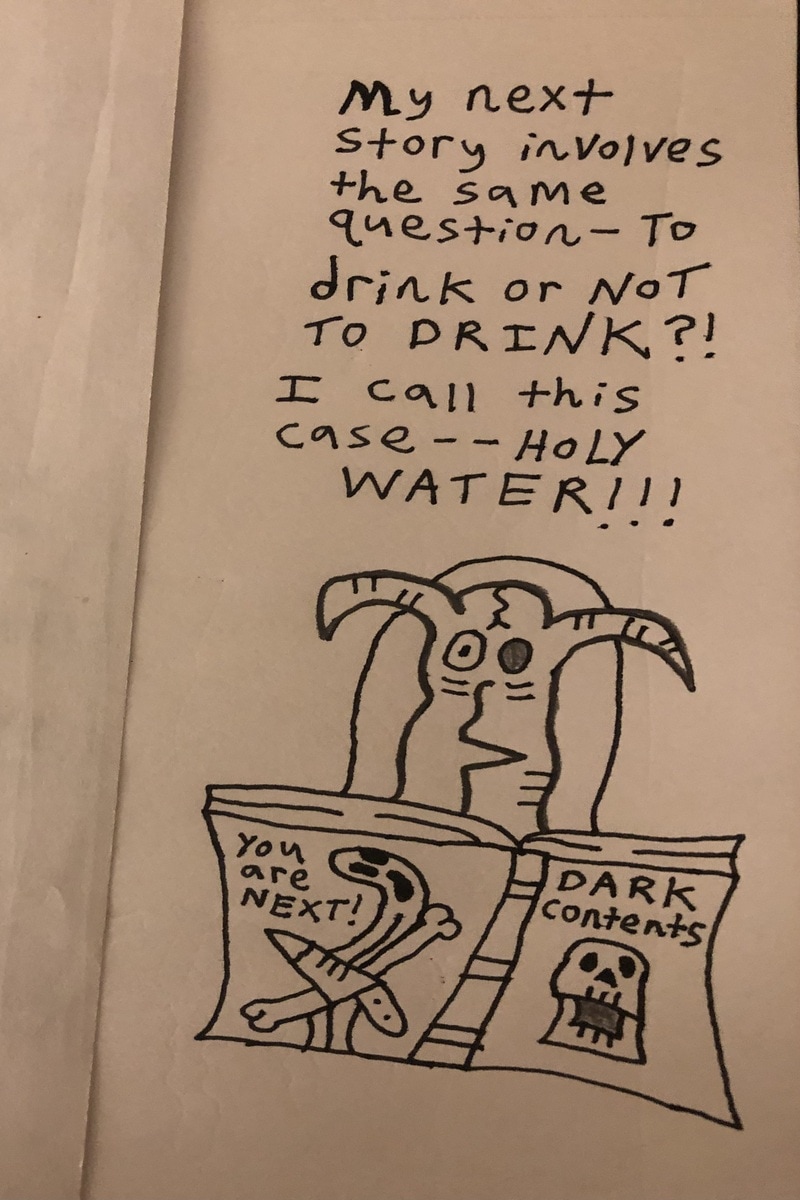 My next
story involves
the same
question- To
drink or NOT
TO DRINK?!
I call this
case--HOLY
WATER!!!
You
are
NEXT!
DARK
contents